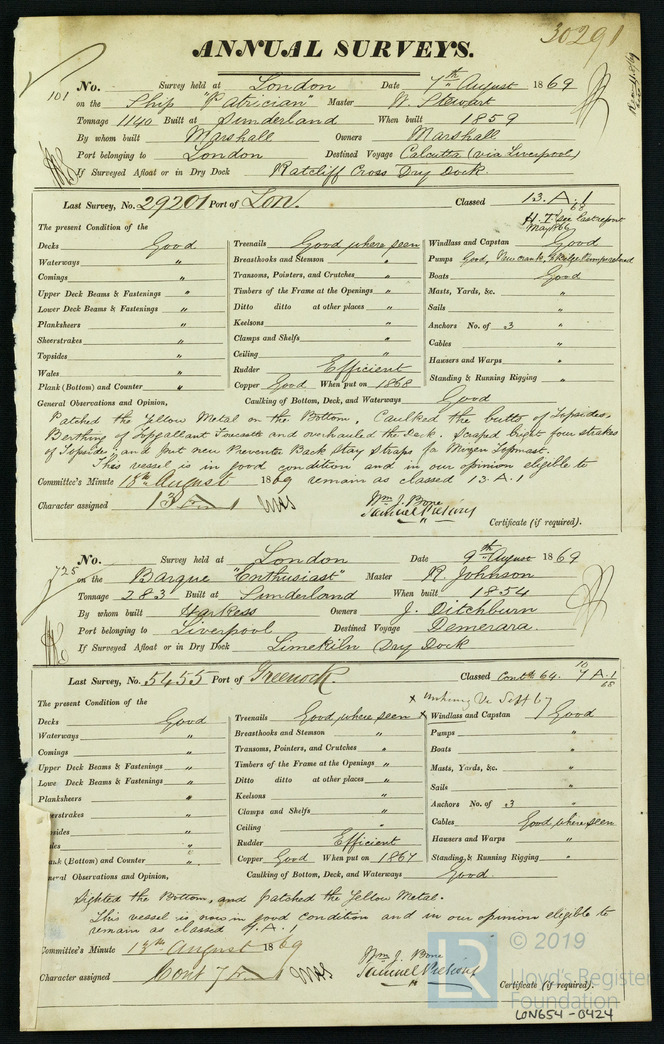 30291
ANNUAL SURVEYS.
101
No. Survey held at London Date 7th August 1869
on the Ship "Patrician" Master W. Stewart
Tonnage 1140 Built at Sunderland When built 1859
By whom built Marshall Owners Marshall
Port belonging to London Destined Voyage Calcutta (via Liverpool)
If Surveyed Afloat or in Dry Dock Ratcliff Cross Dry Dock
Last Survey, No. 29201 Port of Lon. Classed 13. A. 1
68
H.T. see last report
May 66
The present Condition of the
Decks Good
Waterways "
Comings "
Upper Deck Beams & Fastenings "
Lower Deck Beams & Fastenings "
Planksheers "
Sheerstrakes "
Topsides "
Wales "
Plank (Bottom) and Counter "
Treenails Good where seen
Breasthooks and Stemson "
Transoms, Pointers, and Crutches "
Timbers of the Frame at the Openings "
Ditto ditto at other places "
Keelsons "
Clamps and Shelfs "
Ceiling "
Rudder Efficient
Copper Good When put on 1868
Windlass and Capstan Good
Pumps Good, New cranks, & Bilge Pump
Boats Good
Masts, Yards, &c. "
Sails "
Anchors No. of 3 "
Cables "
Hausers and Warps "
Standing & Running Rigging "
General Observations and Opinion, Caulking of Bottom, Deck, and Waterways Good
Patched the Yellow Metal on the Bottom, Caulked the butts of Topsides,
Berthing of Topgallant Forecastle and overhauled the deck. Scraped bright four strakes
of Topsides and put new Preventer Back Stay Straps for Mizen Topmast.
This vessel is in good condition and in our opinion eligible to
remain as classed 13. A. 1
Committee's Minute 18th August 1869
Character assigned 13 A 1
Wm. J. Bone
Samuel Pretious
Certificate (if required).
725
No. Survey held at London Date 9th August 1869
on the Barque "Enthusiast" Master R. Johnson
Tonnage 283 Built at Sunderland When built 1854
By whom built Harkess Owners J. Ditchburn
Port belonging to Liverpool Destined Voyage Demerara.
If Surveyed Afloat or in Dry Dock Limekiln Dry Dock
Last Survey, No. 5455 Port of Greenock Classed Contd 64. 7 A. 1
10
65
Sept 67
The present Condition of the
Decks Good
Waterways "
Comings "
Upper Deck Beams & Fastenings "
Lowe Deck Beams & Fastenings "
Planksheers "
erstrakes "
sides "
les "
nk (Bottom) and Counter "
Treenails Good where seen x
Breasthooks and Stemson "
Transoms, Pointers, and Crutches "
Timbers of the Frame at the Openings "
Ditto ditto at other places "
Keelsons "
Clamps and Shelfs "
Ceiling "
Rudder Efficient
Copper Good When put on 1867
Windlass and Capstan Good
Pumps "
Boats "
Masts, Yards, &c. "
Sails "
Anchors No. of 3 "
Cables Good where seen
Hausers and Warps "
Standing & Running Rigging "
eral Observations and Opinion, Caulking of Bottom, Deck, and Waterways Good.
Sighted the Bottom, and patched the Yellow Metal.
This vessel is now in good condition and in our opinion eligible to
remain as classed 7. A. 1
Committee's Minute 13th August 1869
Character assigned Cont 7 A 1
Wm. J. Bone
Samuel Pretious
Certificate (if required).
LR © 2019
Lloyd's Register
Foundation
LON654-0424